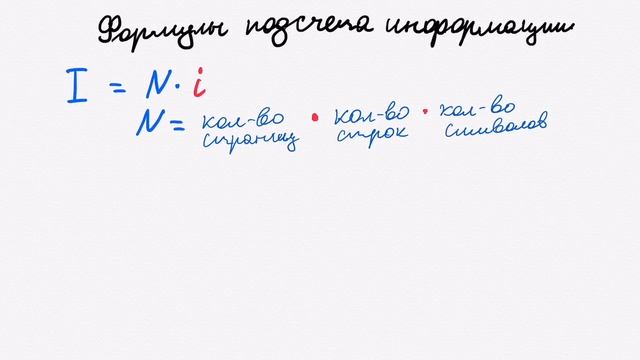 Формулы подсчета информации
I = N · i
N = кол-во страниц · кол-во строк · кол-во символов